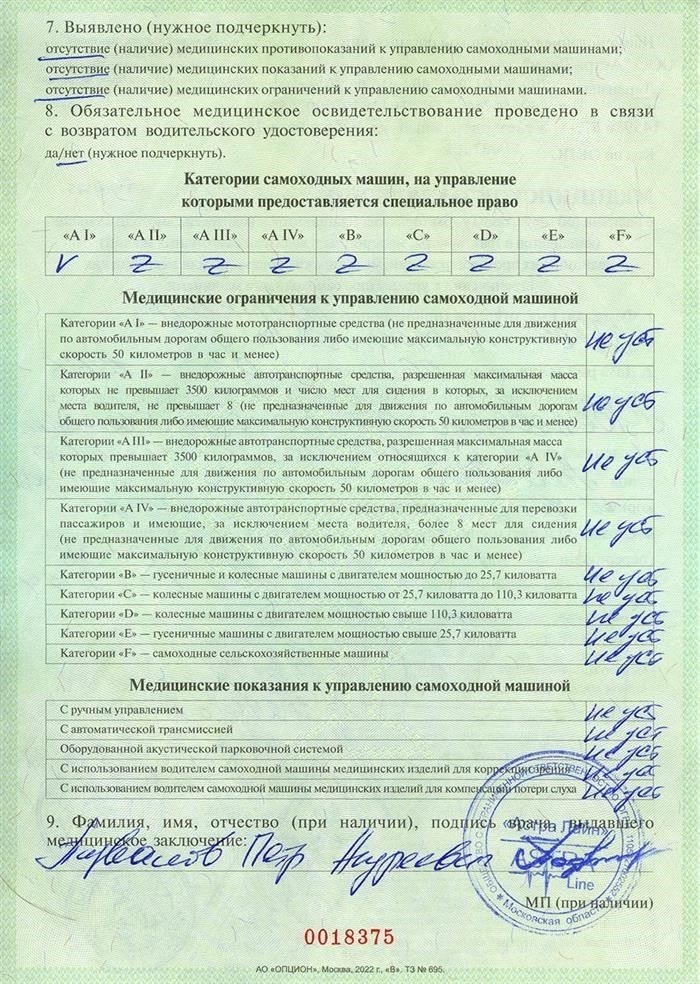 7. Выявлено (нужное подчеркнуть):
отсутствие (наличие) медицинских противопоказаний к управлению самоходными машинами;
отсутствие (наличие) медицинских показаний к управлению самоходными машинами;
отсутствие (наличие) медицинских ограничений к управлению самоходными машинами.
8. Обязательное медицинское освидетельствование проведено в связи
с возвратом водительского удостоверения:
да/нет (нужное подчеркнуть).
Категории самоходных машин, на управление
которыми предоставляется специальное право
«A I» «A II» «A III» «A IV» «B» «C» «D» «E» «F»
V Z Z Z Z Z Z Z Z
Медицинские ограничения к управлению самоходной машиной
Категории «A I» — внедорожные мототранспортные средства (не предназначенные для движения
по автомобильным дорогам общего пользования либо имеющие максимальную конструктивную
скорость 50 километров в час и менее)
не уст
Категории «A II» — внедорожные автотранспортные средства, разрешенная максимальная масса
которых не превышает 3500 килограммов и число мест для сидения в которых, за исключением
места водителя, не превышает 8 (не предназначенные для движения по автомобильным дорогам
общего пользования либо имеющие максимальную конструктивную скорость 50 километров в час и менее)
не уст
Категории «A III» — внедорожные автотранспортные средства, разрешенная максимальная масса
которых превышает 3500 килограммов, за исключением относящихся к категории «A IV»
(не предназначенные для движения по автомобильным дорогам общего пользования либо
имеющие максимальную конструктивную скорость 50 километров в час и менее)
не уст
Категории «A IV» — внедорожные автотранспортные средства, предназначенные для перевозки
пассажиров и имеющие, за исключением места водителя, более 8 мест для сидения
(не предназначенные для движения по автомобильным дорогам общего пользования либо
имеющие максимальную конструктивную скорость 50 километров в час и менее)
не уст
Категории «B» — гусеничные и колесные машины с двигателем мощностью до 25,7 киловатта не уст
Категории «C» — колесные машины с двигателем мощностью от 25,7 киловатта до 110,3 киловатта не уст
Категории «D» — колесные машины с двигателем мощностью свыше 110,3 киловатта не уст
Категории «E» — гусеничные машины с двигателем мощностью свыше 25,7 киловатта не уст
Категории «F» — самоходные сельскохозяйственные машины не уст
Медицинские показания к управлению самоходной машиной
С ручным управлением не уст
С автоматической трансмиссией не уст
Оборудованной акустической парковочной системой не уст
С использованием водителем самоходной машины медицинских изделий для коррекции зрения не уст
С использованием водителем самоходной машины медицинских изделий для компенсации потери слуха не уст
9. Фамилия, имя, отчество (при наличии), подпись врача, выдавшего
медицинское заключение:
Петр Андреевич
«Астра Лайн»
Line
Московская область
МП (при наличии)
0018375
АО «ОПЦИОН», Москва, 2022 г., «В». ТЗ № 695.